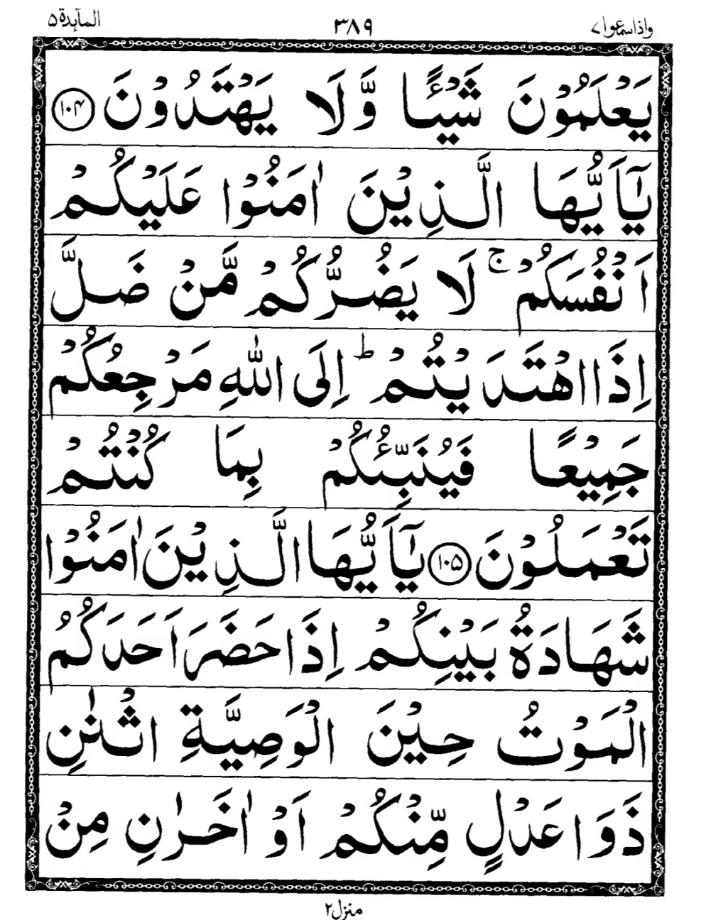 واذاسمعوا٧ ٣٨٩ المآىدة۵
يَعْلَمُوْنَ شَيْـًٔا وَّلَا يَهْتَدُوْنَ ۝۱۰۴
يٰٓاَيُّهَا الَّذِيْنَ اٰمَنُوْا عَلَيْكُمْ
اَنْفُسَكُمْ ۚ لَا يَضُرُّكُمْ مَّنْ ضَلَّ
اِذَا اهْتَدَيْتُمْ ؕ اِلَى اللّٰهِ مَرْجِعُكُمْ
جَمِيْعًا فَيُنَبِّئُكُمْ بِمَا كُنْتُمْ
تَعْمَلُوْنَ ۝۱۰۵ يٰٓاَيُّهَا الَّذِيْنَ اٰمَنُوْا
شَهَادَةُ بَيْنِكُمْ اِذَا حَضَرَ اَحَدَكُمُ
الْمَوْتُ حِيْنَ الْوَصِيَّةِ اثْنٰنِ
ذَوَا عَدْلٍ مِّنْكُمْ اَوْ اٰخَرٰنِ مِنْ
منزل۲